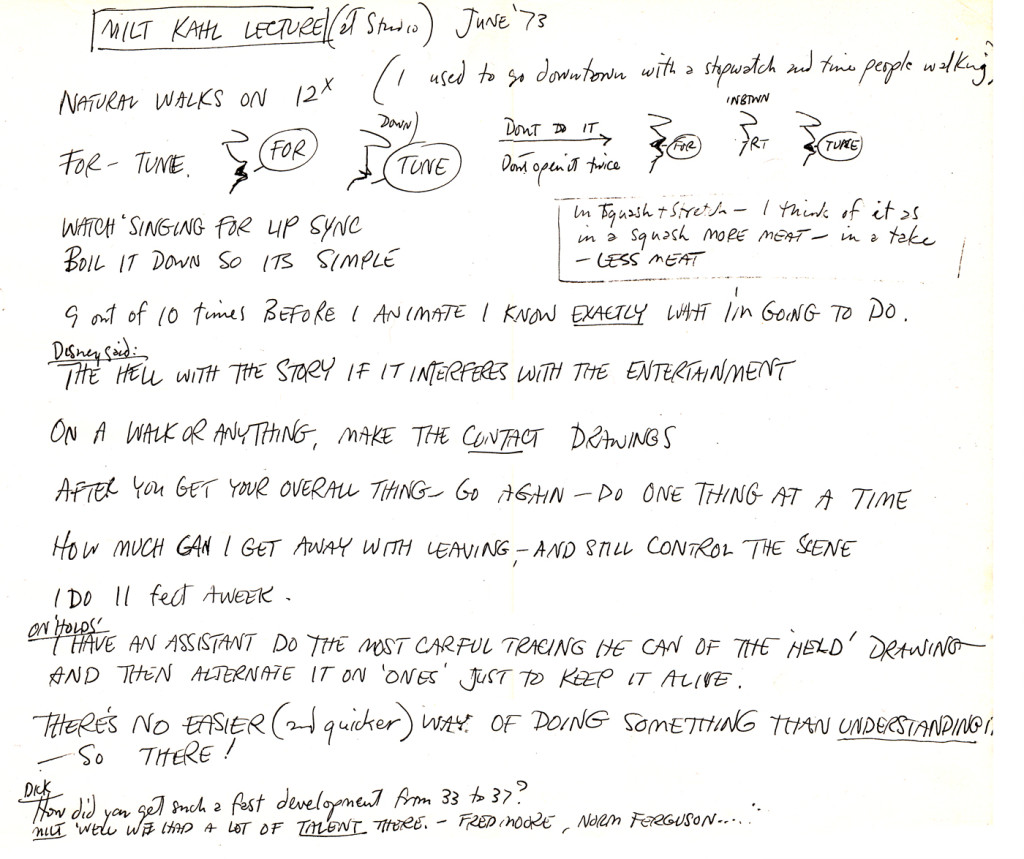 MILT KAHL LECTURE (at Studio) JUNE '73
NATURAL WALKS ON 12x (I used to go downtown with a stopwatch and time people walking)
FOR - TUNE. FOR DOWN TUNE DONT DO IT Don't open it twice FOR INBTWN RT TUNE
WATCH 'SINGING FOR LIP SYNC
BOIL IT DOWN SO ITS SIMPLE
In Squash + Stretch - I think of it as
in a squash MORE MEAT - in a take
- LESS MEAT
9 out of 10 times BEFORE I ANIMATE I KNOW EXACTLY WHAT I'm GOING TO DO.
Disney said:
THE HELL WITH THE STORY IF IT INTERFERES WITH THE ENTERTAINMENT
ON A WALK OR ANYTHING, MAKE THE CONTACT DRAWINGS
AFTER YOU GET YOUR OVERALL THING - GO AGAIN - DO ONE THING AT A TIME
HOW MUCH CAN I GET AWAY WITH LEAVING, - AND STILL CONTROL THE SCENE
I DO 11 feet A WEEK.
ON 'HOLDS'
I HAVE AN ASSISTANT DO THE MOST CAREFUL TRACING HE CAN OF THE 'HELD' DRAWING -
AND THEN ALTERNATE IT ON 'ONES' JUST TO KEEP IT ALIVE.
THERE'S NO EASIER (and quicker) WAY OF DOING SOMETHING THAN UNDERSTANDING IT.
- SO THERE!
DICK
How did you get such a fast development from 33 to 37?
MILT 'WELL WE HAD A LOT OF TALENT THERE. - FRED MOORE, NORM FERGUSON.....'